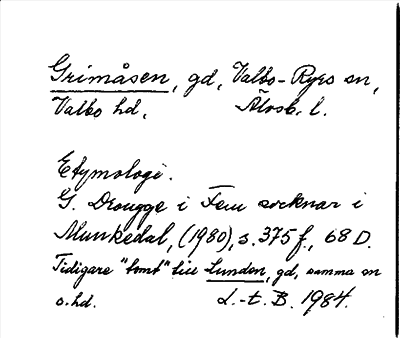 Grimåsen, gd, Valbo-Ryrs sn,
Valbo hd, Älvsb. l.
Etymologi.
G. Drougge i Fem socknar i
Munkedal, (1980), s. 375 f., 68 D.
Tidigare "tomt" till Lunden, gd, samma sn
o. hd. L.-t. B. 1984.